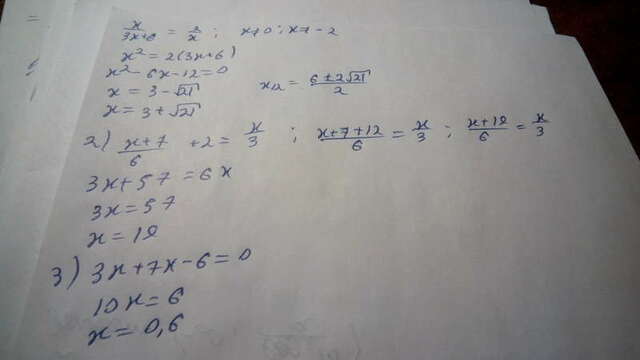 x/3x+6 = 2/x ; x≠0 ; x≠-2
x² = 2(3x+6)
x² - 6x - 12 = 0
x = 3 - √21 x₁,₂ = 6 ± 2√21 / 2
x = 3 + √21
2) x+7/6 + 2 = x/3 ; x+7+12/6 = x/3 ; x+19/6 = x/3
3x + 57 = 6x
3x = 57
x = 19
3) 3x + 7x - 6 = 0
10x = 6
x = 0,6